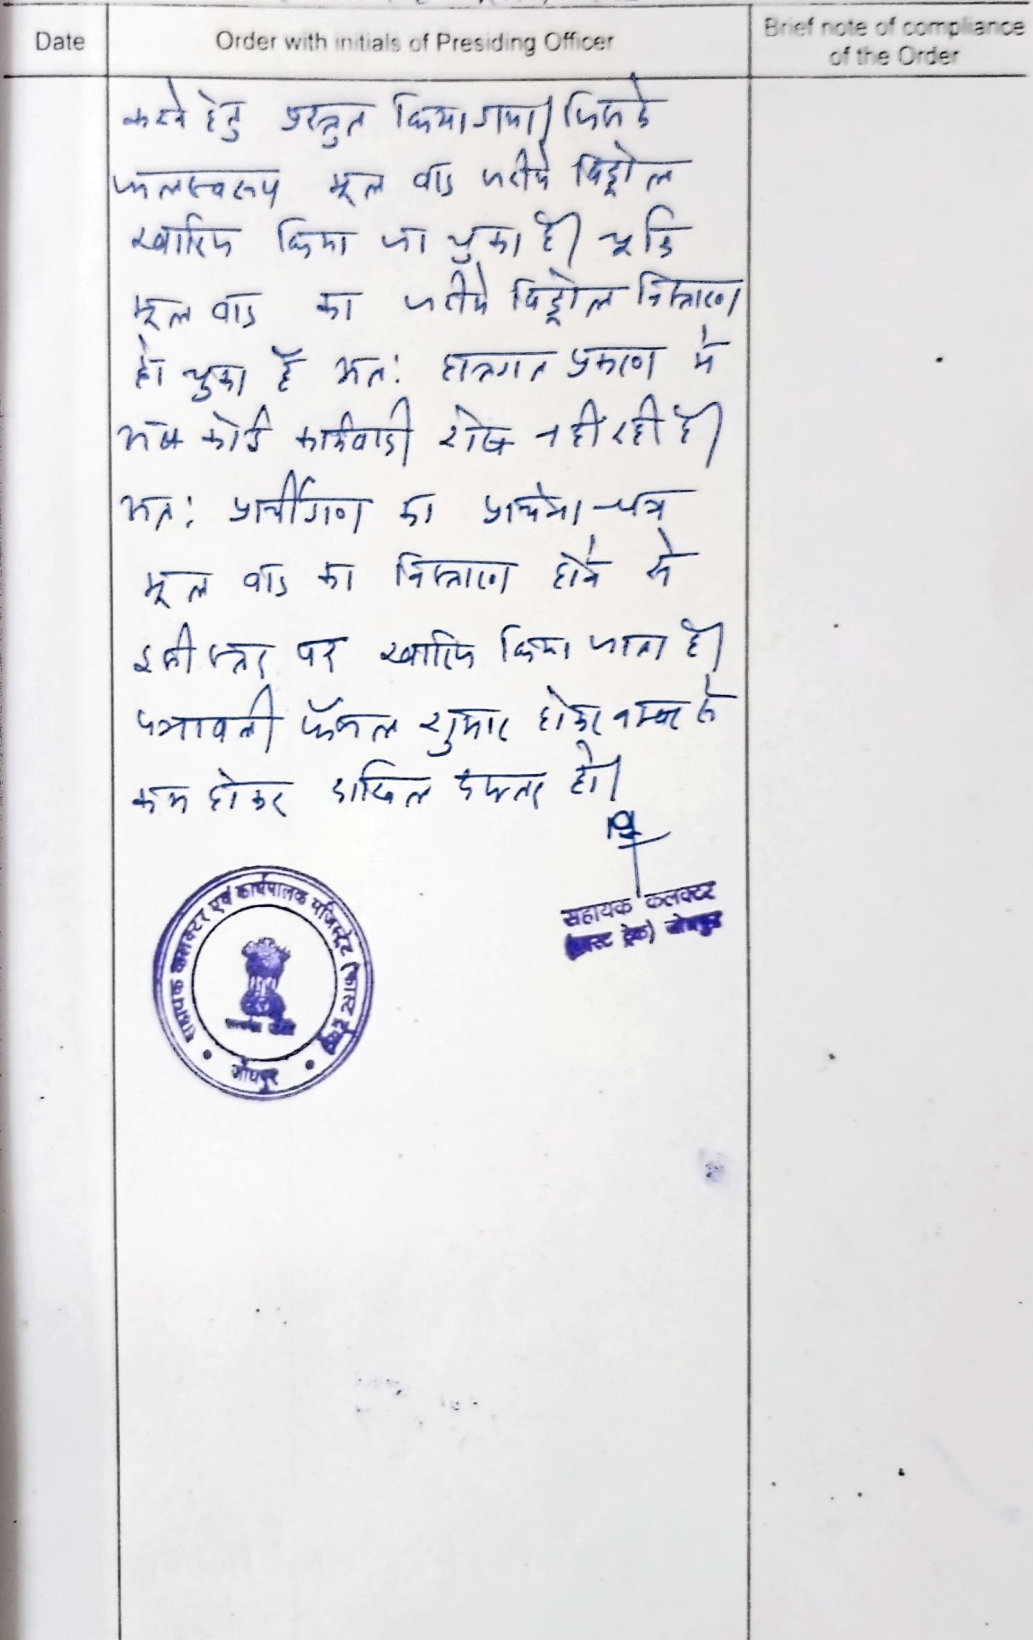 Date
Order with initials of Presiding Officer
Brief note of compliance
of the Order
करने हेतु प्रस्तुत किया गया। जिसके
फलस्वरूप मूल वाद जरीये विड्रोल
खारिज किया जा चुका है। चूंकि
मूल वाद का जरीये विड्रोल निस्तारण
हो चुका है अत: हस्तगत प्रकरण में
अब कोई कार्यवाही शेष नहीं रही है।
अत: प्रार्थीगण का प्रार्थना-पत्र
मूल वाद का निस्तारण होने से
इसी स्तर पर खारिज किया जाता है।
पत्रावली फैसल शुमार होकर नम्बर से
कम होकर दाखिल दफ्तर हो।
सहायक कलक्टर
(फास्ट ट्रेक) जोधपुर
सहायक कलक्टर एवं कार्यपालक मजिस्ट्रेट (फास्ट ट्रेक)
जोधपुर